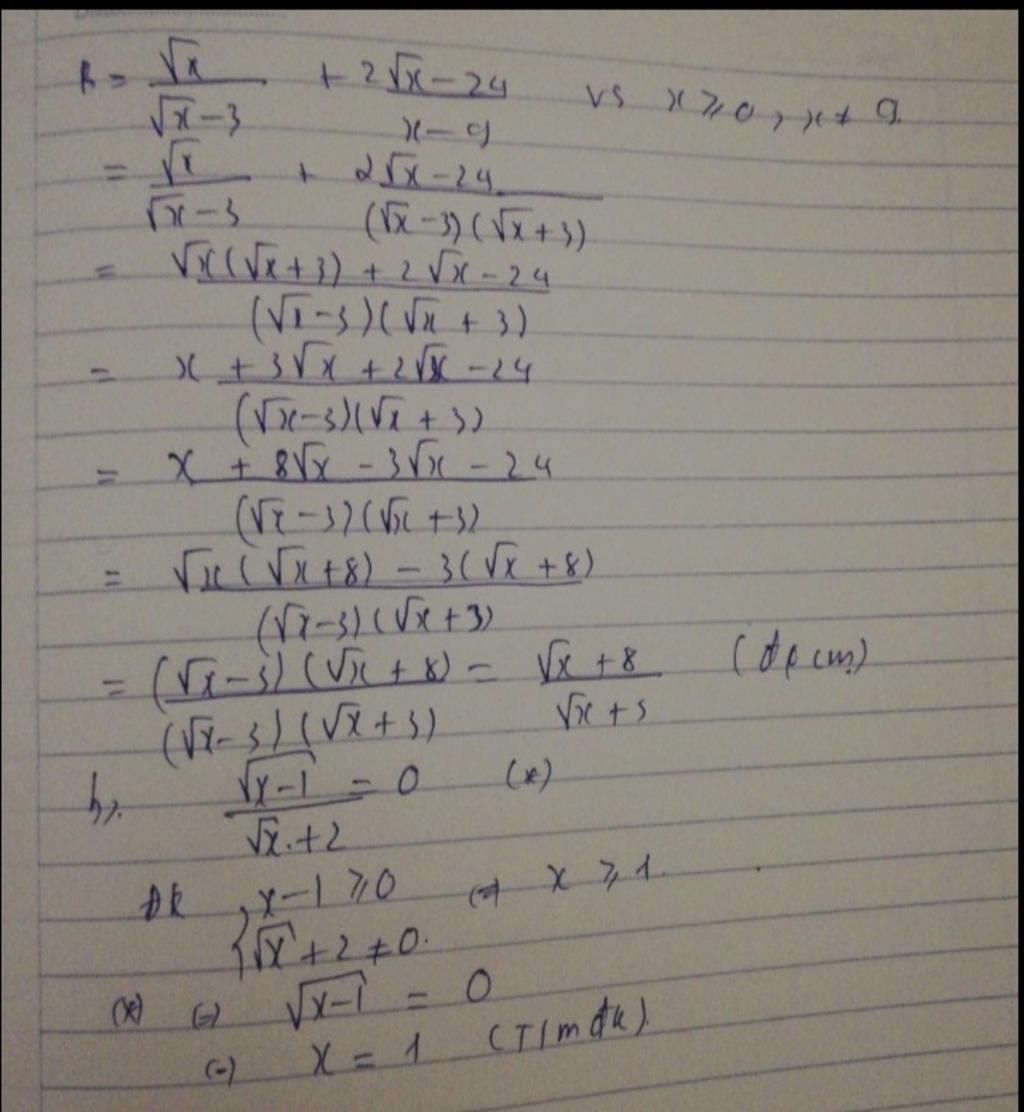 B = √x / (√x − 3) + (2√x − 24) / (x − 9) vs x ≥ 0, x ≠ 9.
= √x / (√x − 3) + (2√x − 24) / ((√x − 3)(√x + 3))
= (√x(√x + 3) + 2√x − 24) / ((√x − 3)(√x + 3))
= (x + 3√x + 2√x − 24) / ((√x − 3)(√x + 3))
= (x + 8√x − 3√x − 24) / ((√x − 3)(√x + 3))
= (√x(√x + 8) − 3(√x + 8)) / ((√x − 3)(√x + 3))
= ((√x − 3)(√x + 8)) / ((√x − 3)(√x + 3)) = (√x + 8) / (√x + 3) (đpcm)
b, √(x − 1) / (√x + 2) = 0 (*)
ĐK { x − 1 ≥ 0 (=) x ≥ 1.
√x + 2 ≠ 0.
(*) (=) √(x − 1) = 0
(=) x = 1 (T/m đk).